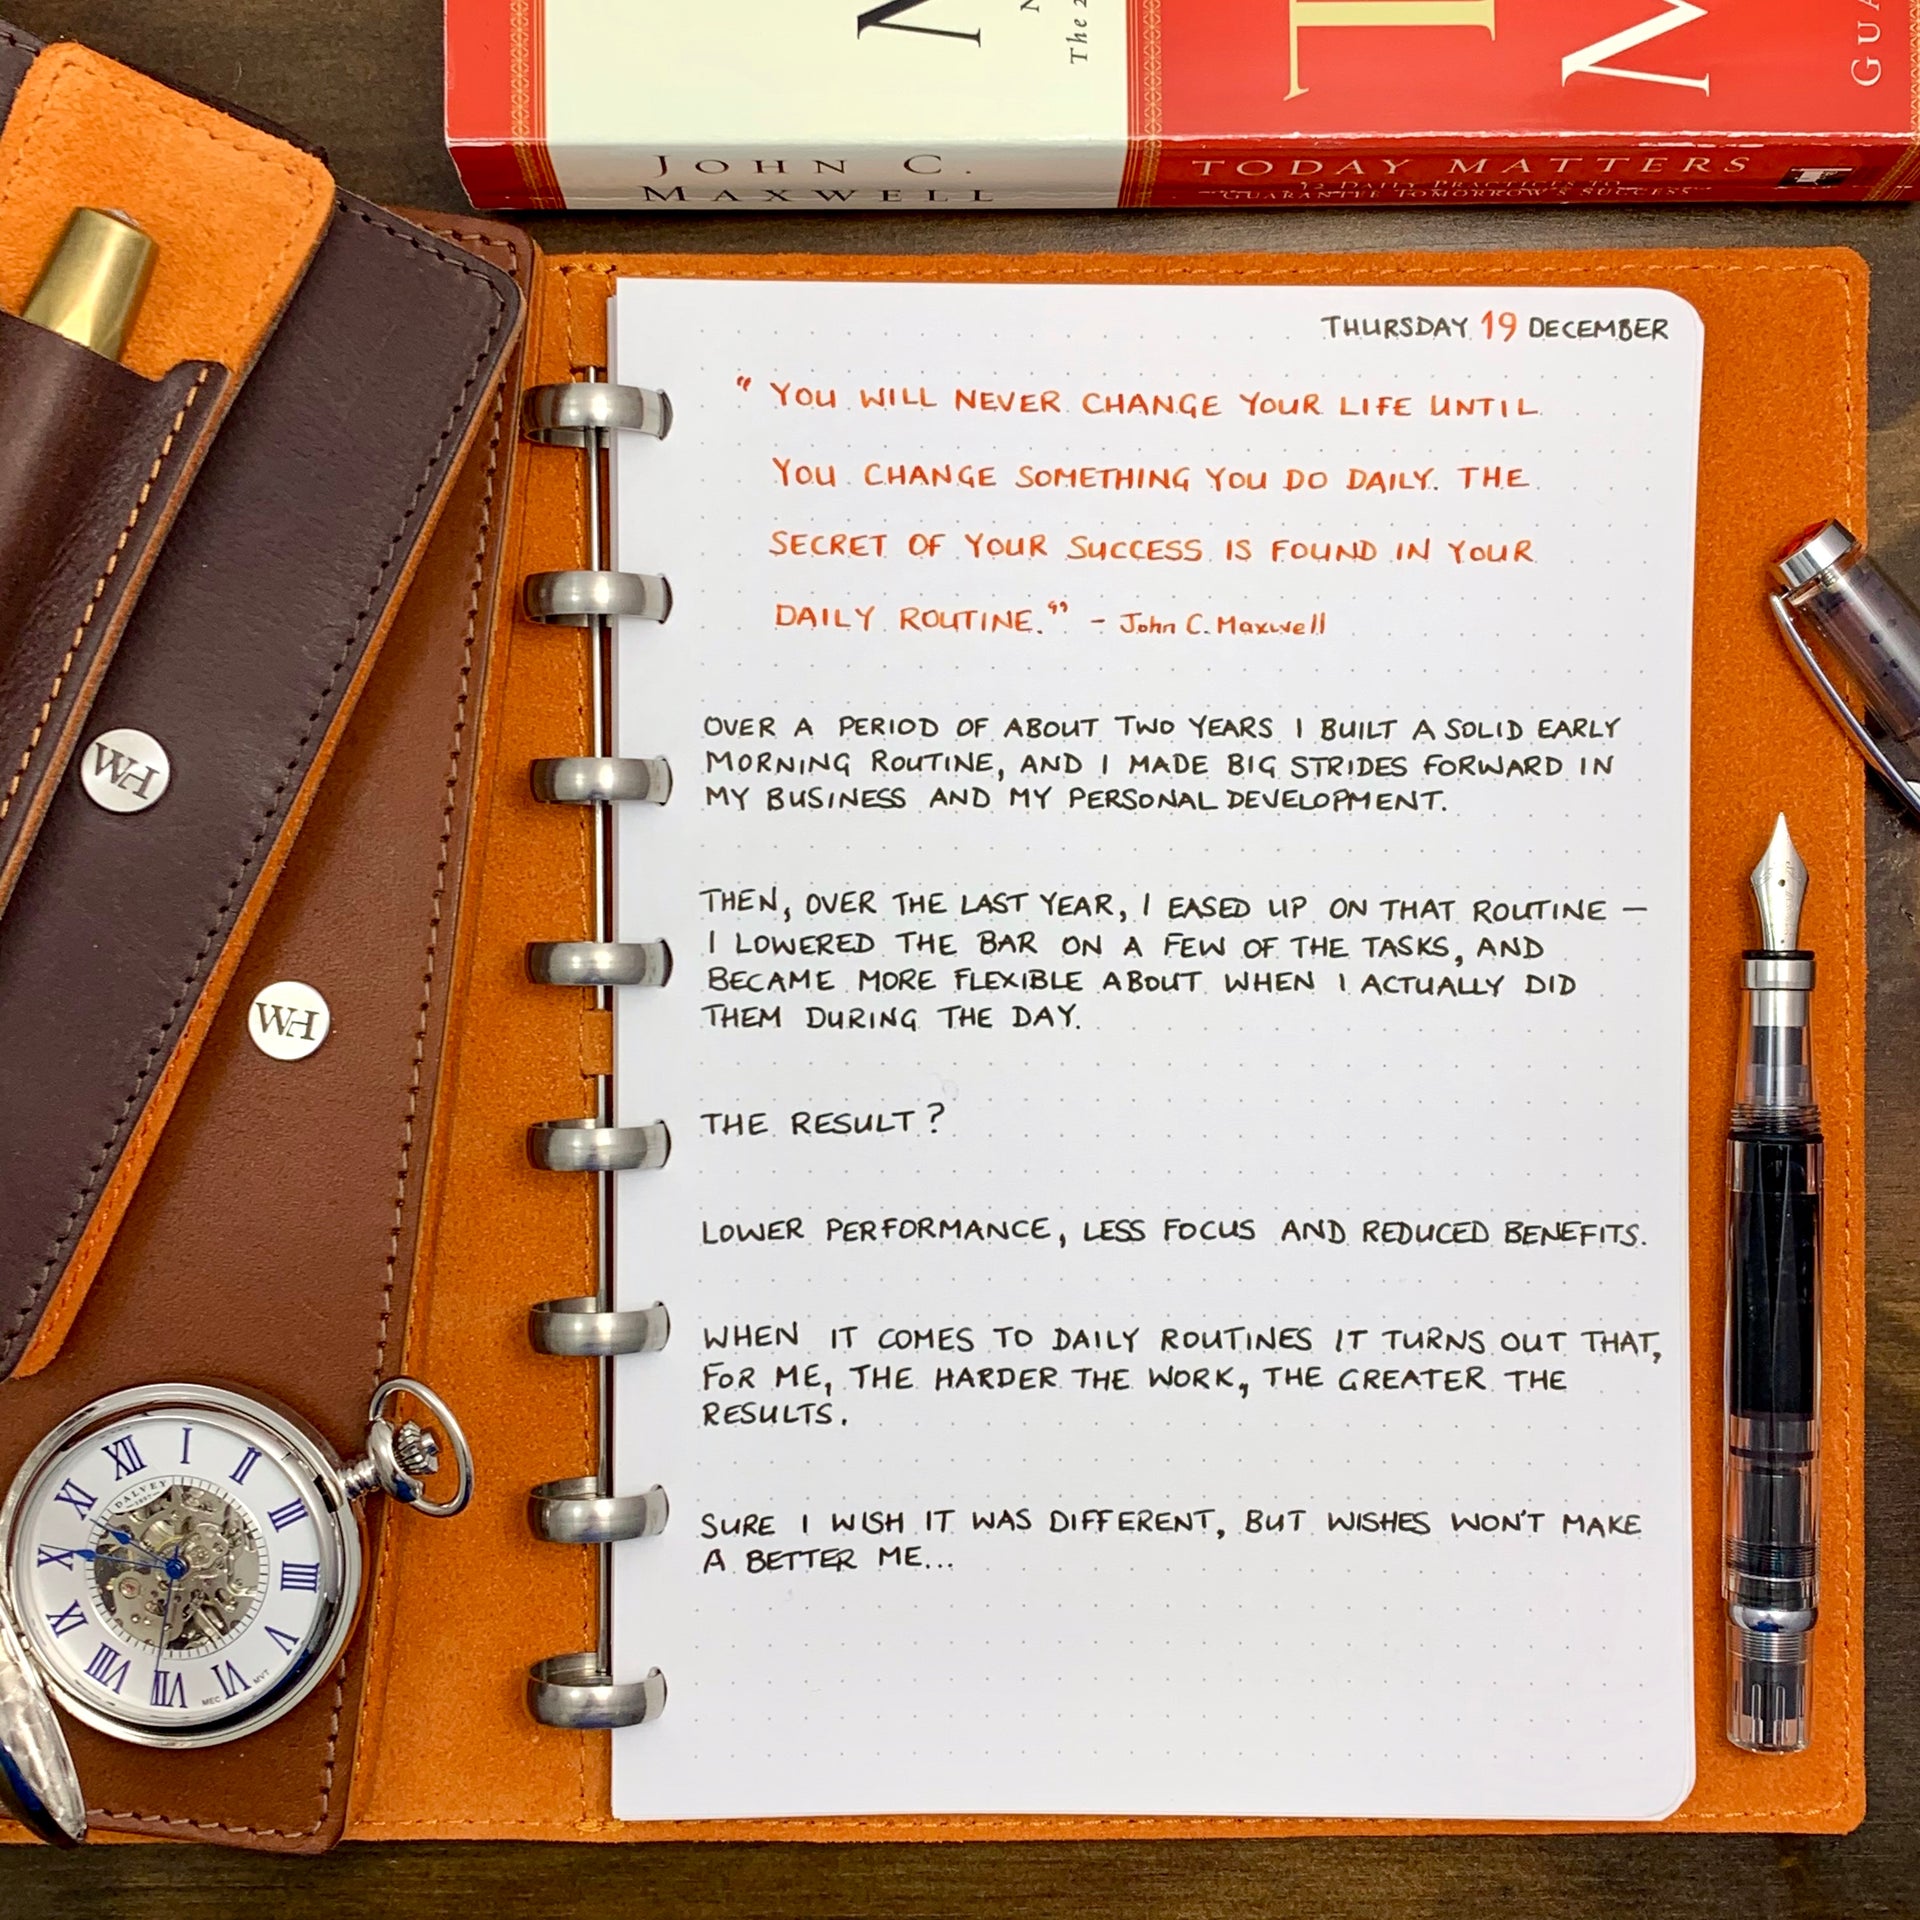 JOHN C.
MAXWELL
The 2
TODAY MATTERS
12 DAILY PRACTICES TO
GUARANTEE TOMORROW'S SUCCESS
GUA
THURSDAY 19 DECEMBER
" YOU WILL NEVER CHANGE YOUR LIFE UNTIL
YOU CHANGE SOMETHING YOU DO DAILY. THE
SECRET OF YOUR SUCCESS IS FOUND IN YOUR
DAILY ROUTINE." - John C. Maxwell
OVER A PERIOD OF ABOUT TWO YEARS I BUILT A SOLID EARLY
MORNING ROUTINE, AND I MADE BIG STRIDES FORWARD IN
MY BUSINESS AND MY PERSONAL DEVELOPMENT.
THEN, OVER THE LAST YEAR, I EASED UP ON THAT ROUTINE —
I LOWERED THE BAR ON A FEW OF THE TASKS, AND
BECAME MORE FLEXIBLE ABOUT WHEN I ACTUALLY DID
THEM DURING THE DAY.
THE RESULT?
LOWER PERFORMANCE, LESS FOCUS AND REDUCED BENEFITS.
WHEN IT COMES TO DAILY ROUTINES IT TURNS OUT THAT,
FOR ME, THE HARDER THE WORK, THE GREATER THE
RESULTS.
SURE I WISH IT WAS DIFFERENT, BUT WISHES WON'T MAKE
A BETTER ME...
WH
WH
DALVEY
XII I II III IIII V VI VII VIII IX X XI
MEC MVT